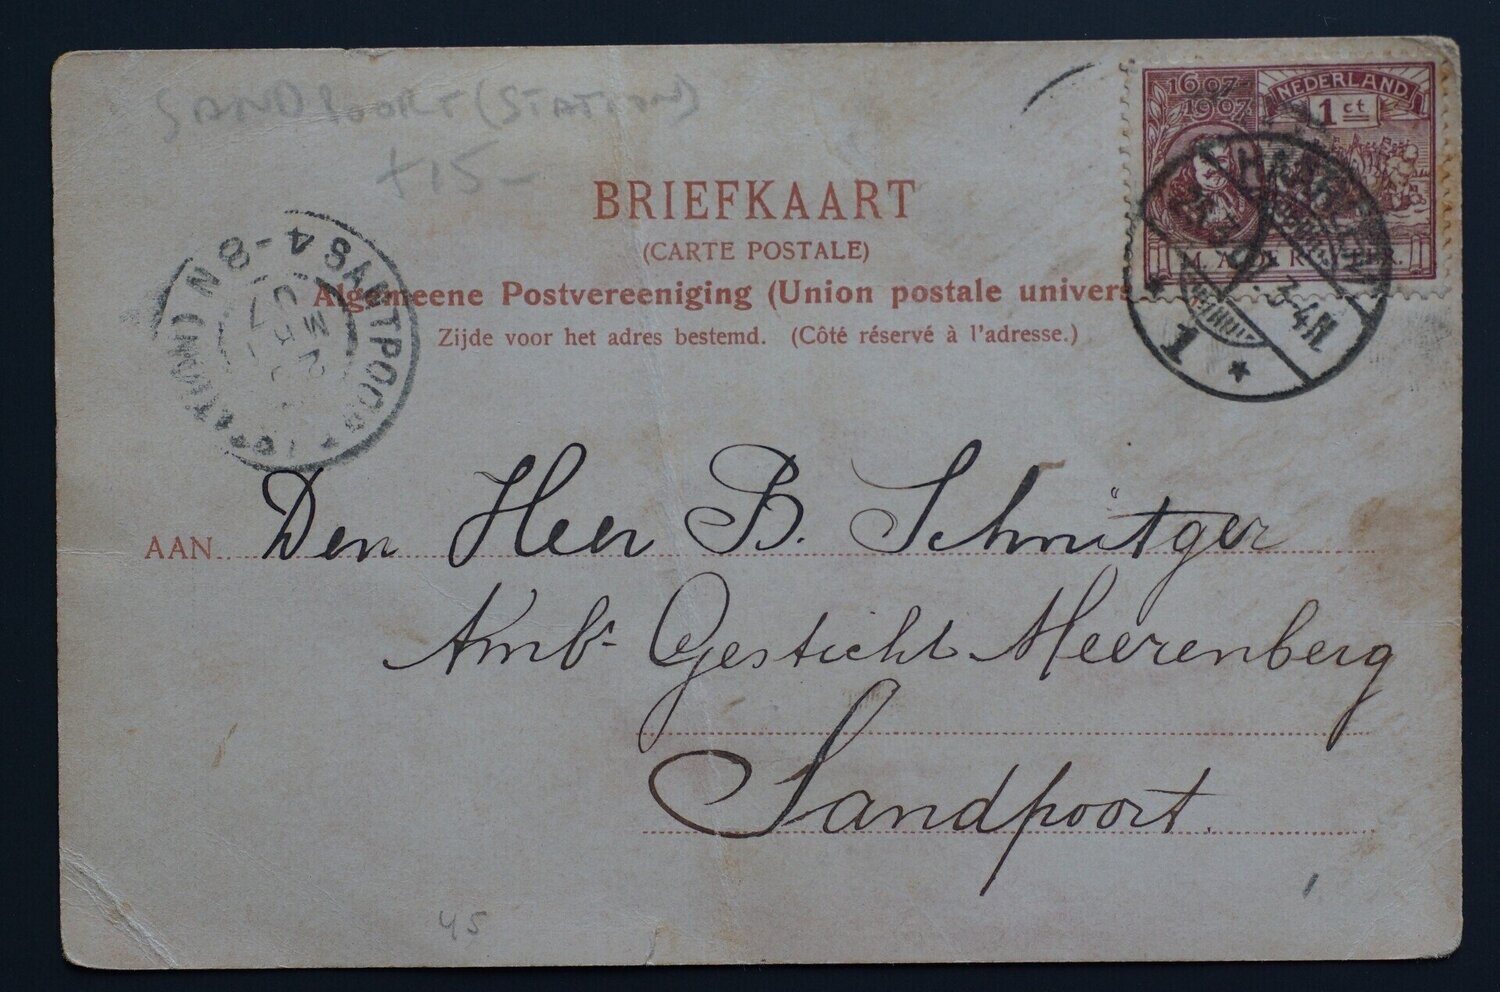 SANDPOORT (STATION)
+15-
BRIEFKAART
(CARTE POSTALE)
Algemeene Postvereeniging (Union postale univers
Zijde voor het adres bestemd. (Côté réservé à l'adresse.)
1607
1907
NEDERLAND
1 ct
HAARLEM
3-4N
1
SANTPOORT
4-8N
AAN Den Heer B. Schnitger
Ambr Gesticht Meerenberg
Sandpoort.
45